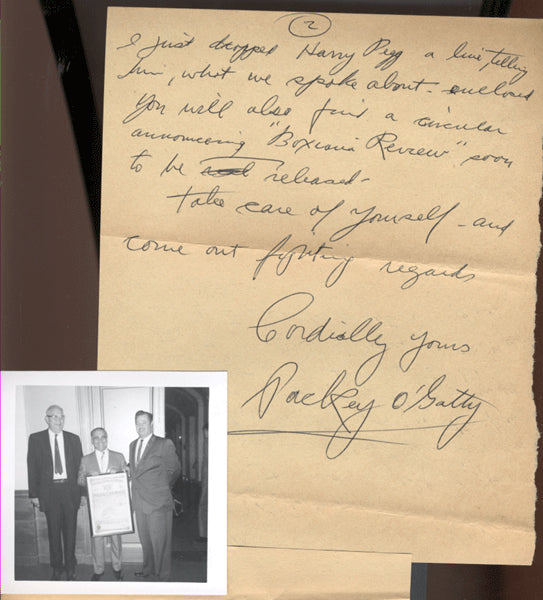 2
I just dropped Harry Pegg a line, telling
him, what we spoke about - enclosed
you will also find a circular
announcing "Boxiana Review" soon
to be released -
Take care of yourself - and
come out fighting regards
Cordially yours
Packey O'Gatty